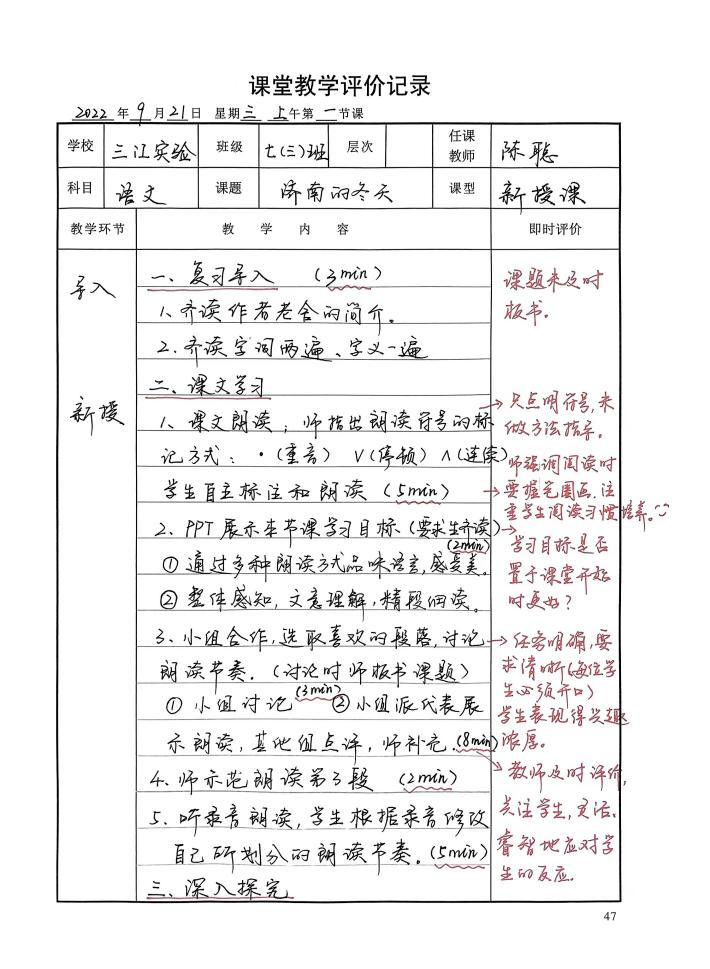 课堂教学评价记录
2022 年 9 月 21 日 星期三 上午第一节课
学校 三江实验 班级 七(三)班 层次 任课教师 陈聪
科目 语文 课题 济南的冬天 课型 新授课
教学环节 教学内容 即时评价
导入
一、复习导入 (3min)
1、齐读作者老舍的简介。
2、齐读字词两遍、字义一遍
新授
二、课文学习
1、课文朗读；师指出朗读符号的标
记方式：·(重音) ∨(停顿) ∧(连续)
学生自主标注和朗读 (5min)
2、PPT展示本节课学习目标(要求生齐读)
(2min)
① 通过多种朗读方式品味语言,感受美。
② 整体感知,文意理解,精段细读。
3、小组合作,选取喜欢的段落,讨论
朗读节奏。(讨论时师板书课题)
① 小组讨论(3min) ② 小组派代表展
示朗读,其他组点评,师补充.(8min)
4、师示范朗读第3段 (2min)
5、听录音朗读,学生根据录音修改
自己所划分的朗读节奏。(5min)
三、深入探究
课题未及时
板书。
→只点明符号,未
做方法指导。
师强调阅读时
→要握笔圈画,注
重学生阅读习惯培养。
→学习目标是否
置于课堂开始
时更好?
→任务明确,要
求清晰(每位学
生必须开口)
学生表现得兴趣
浓厚。
→教师及时评价,
关注学生,灵活、
睿智地应对学
生的反应.
47